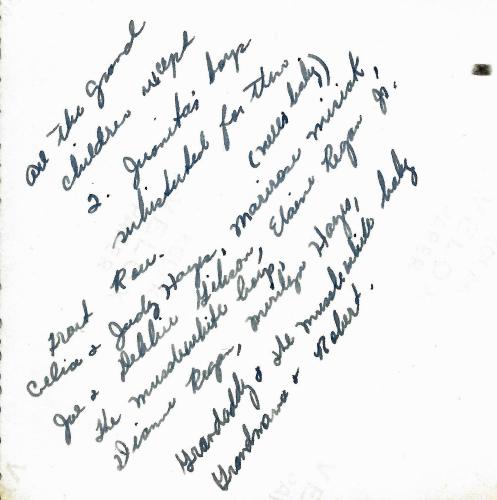 all the grand
children except
2. Juanita's boys
substituted for them
(Nells baby)
Front Row.
Celia & Judy Hayes, Marirose Mirick,
Joe & Debbie Gibson, Elaine Regan Jr.
The Musslewhite boys,
Dianne Regan, Marilyn Hayes,
Grandaddy & the Musslewhite baby
Grandmama & Robert.